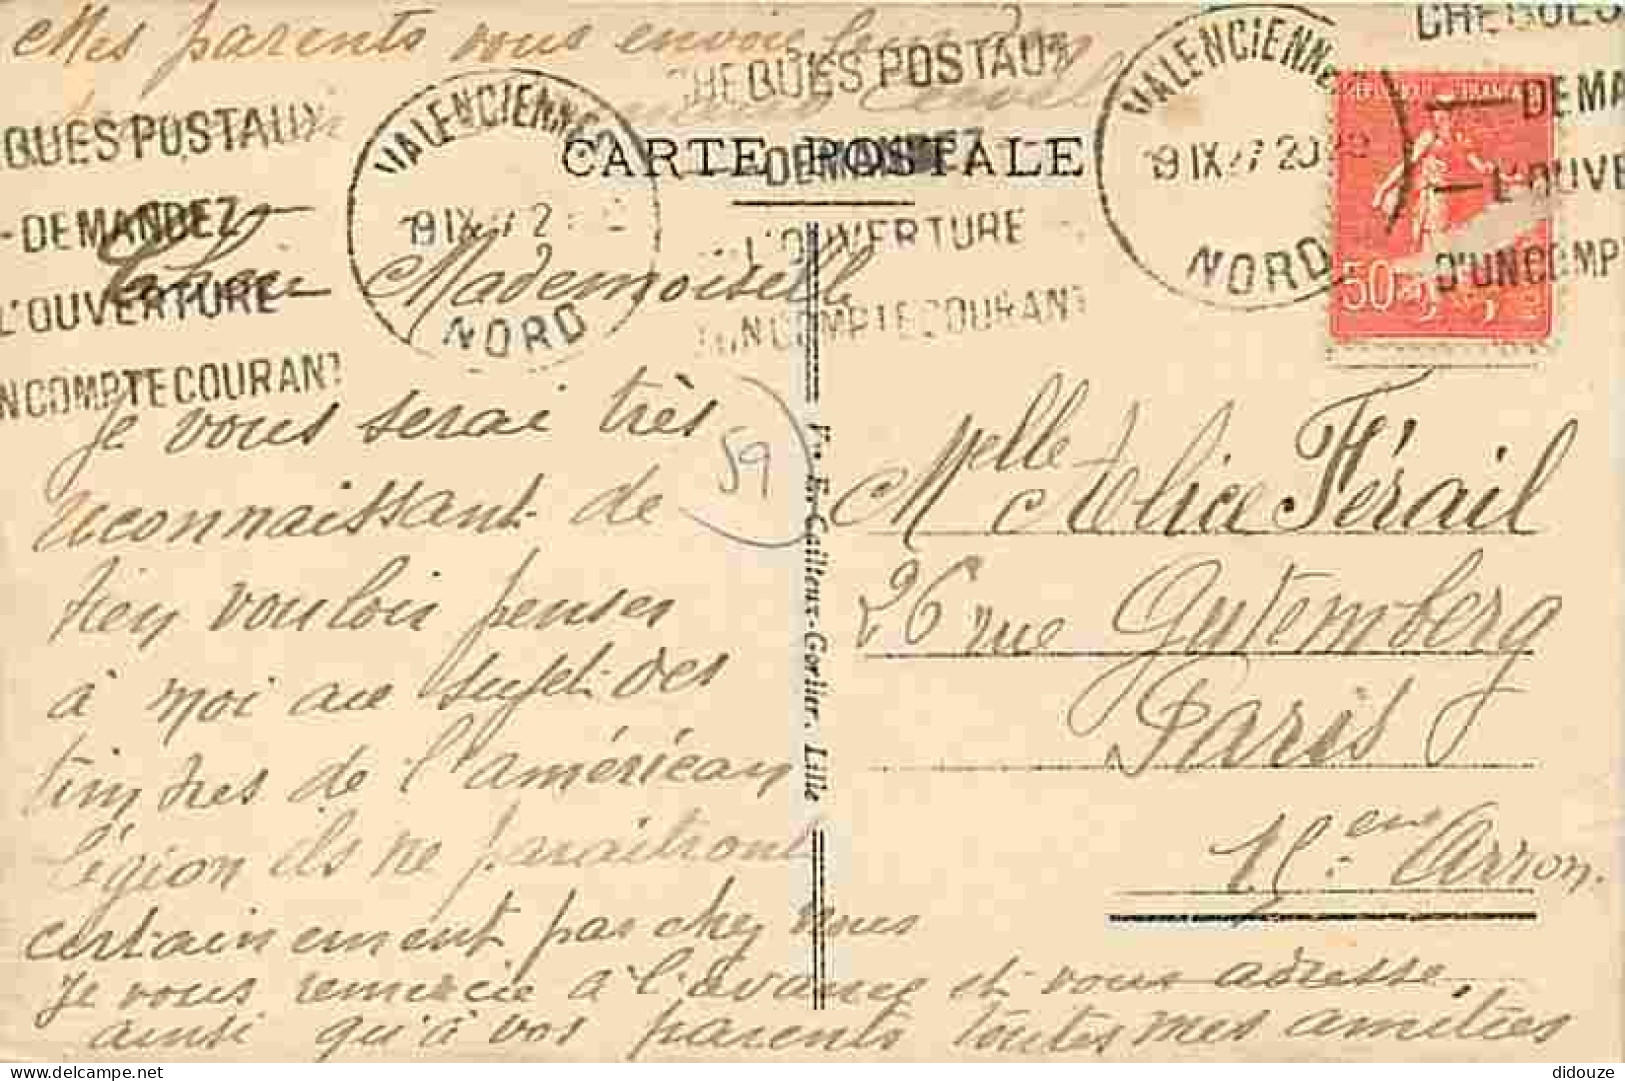 Mes parents vous envoi
CHEQUES POSTAUX
DEMANDEZ
L'OUVERTURE
D'UN COMPTE COURANT
QUES POSTAUX
-DEMANDEZ
L'OUVERTURE
N COMPTE COURANT
VALENCIENNES
19 IX
NORD
CARTE POSTALE
VALENCIENNES
19 IX 20
NORD
CHEQUES
DEMA
L'OUVE
D'UN COMP
50
Mademoiselle
Je vous serai très
reconnaissant de
bien vouloir penser
à moi au sujet des
timbres de l'américan
légion ils ne paraitront
certainement pas chez nous
Je vous remercie à l'avance et vous adresse,
ainsi qu'à vos parents toutes mes amitiées
59
Ets Ern. Cailteux-Gorlier. Lille
Melle Férail
26 rue Gutemberg
Paris
15 eme Arron.
didouze